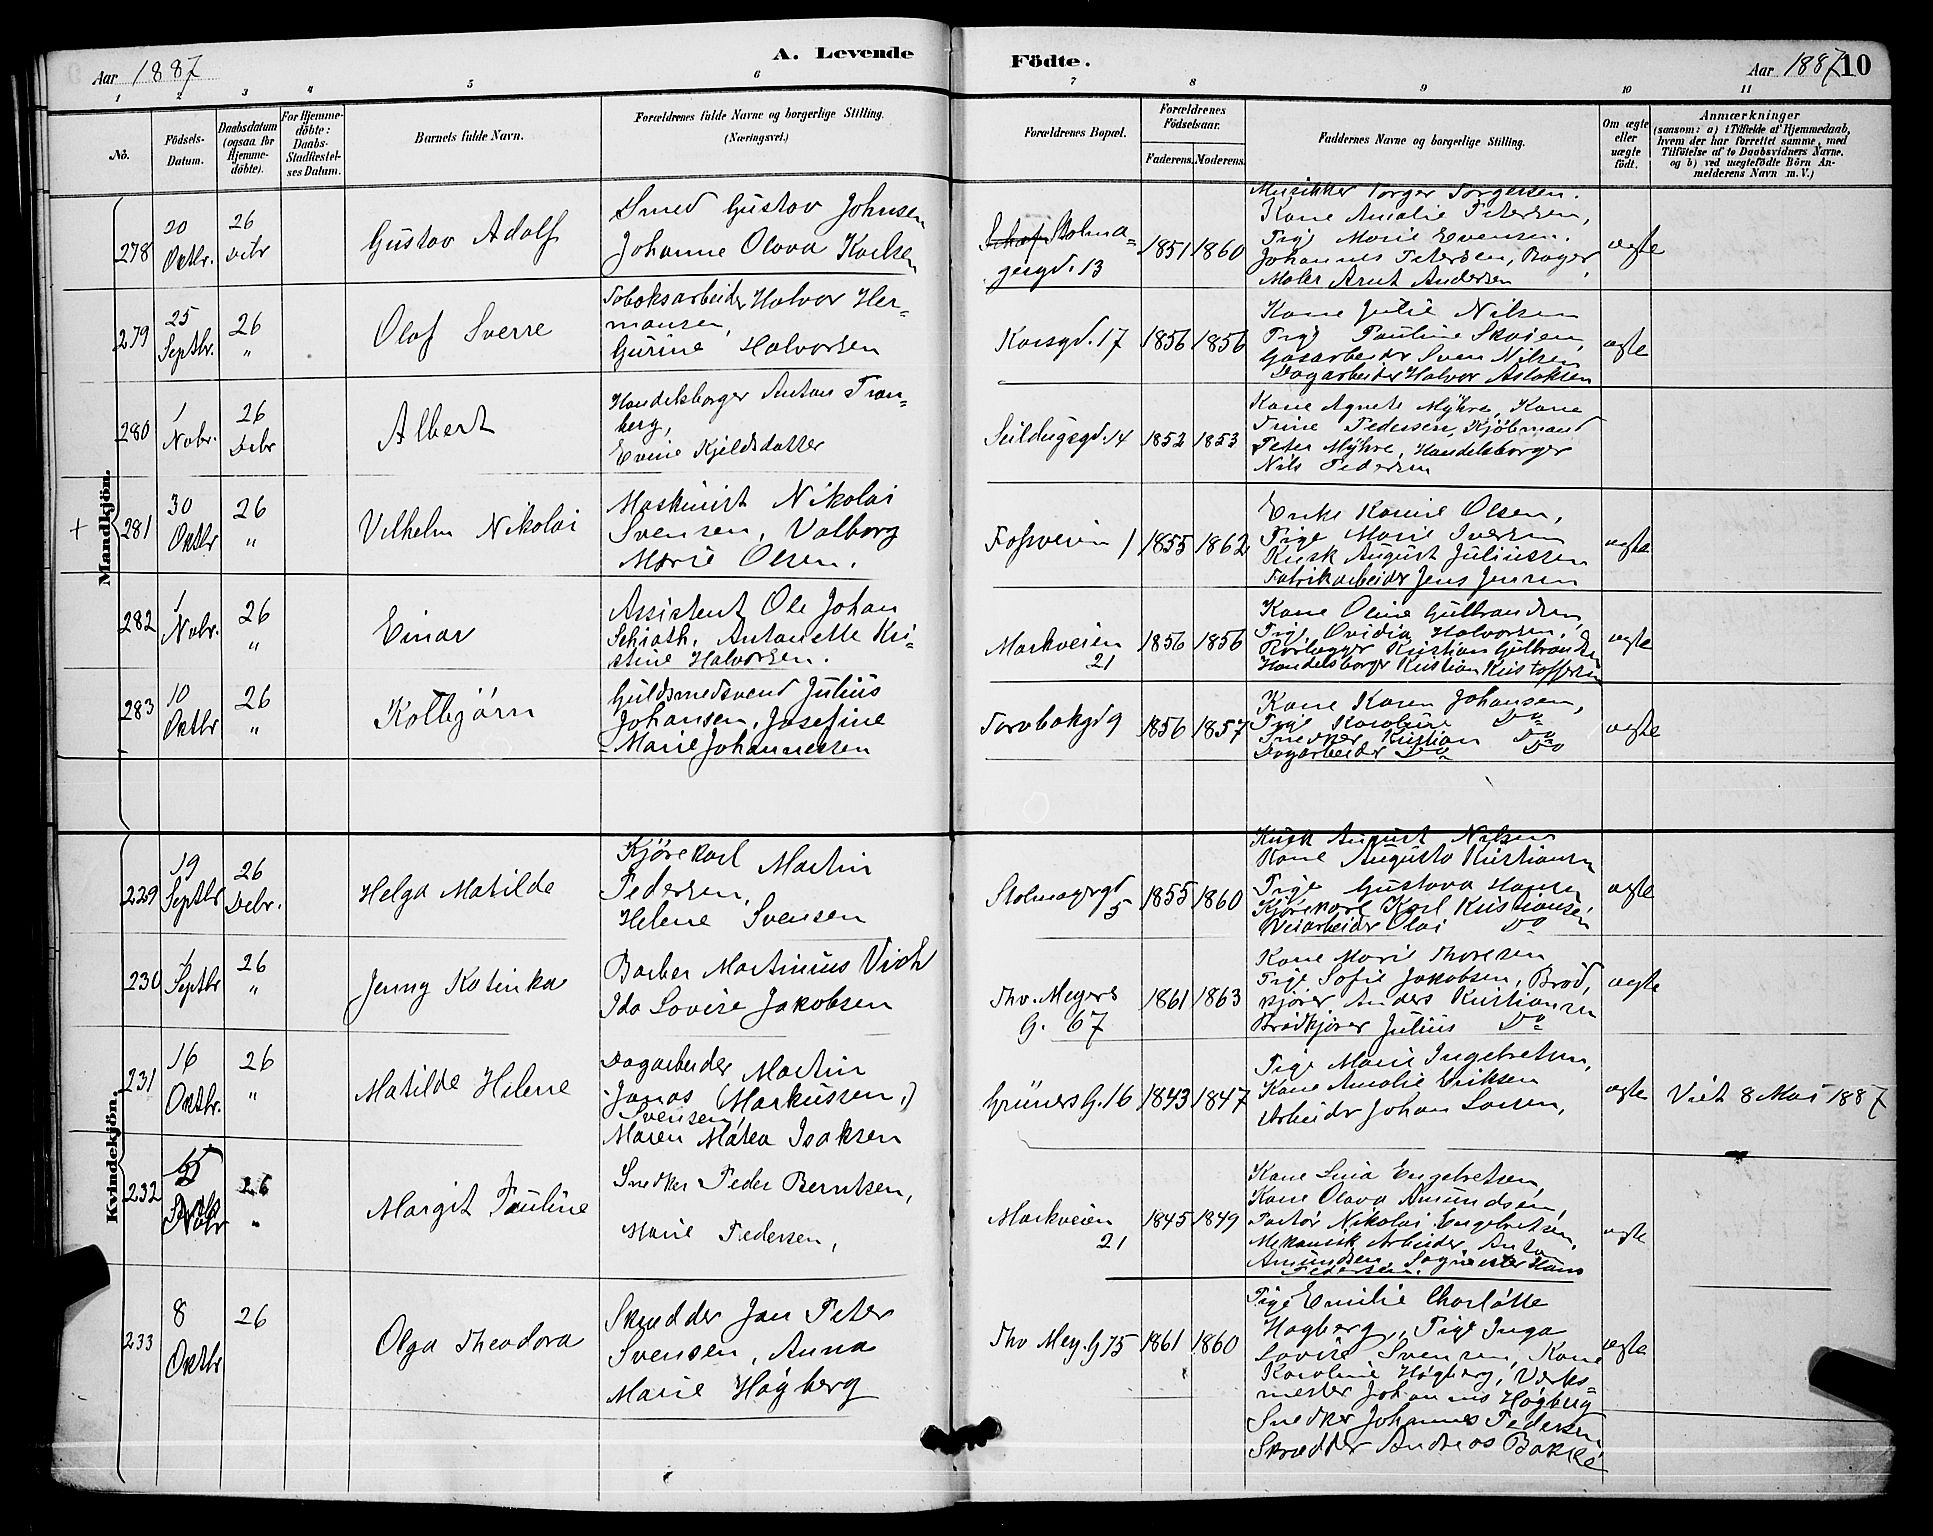 Aar 1887
A. Levende
Födte.
Aar 1887
10
1 2 3 4 5 6 7 8 9 10 11
No.
Födsels-
Datum.
Daabsdatum
(ogsaa for
Hjemme-
döbte).
For Hjemme-
döbte:
Daabs-
Stadfæstel-
ses Datum.
Barnets fulde Navn.
Forældrenes fulde Navne og borgerlige Stilling.
(Næringsvei.)
Forældrenes Bopæl.
Forældrenes
Födselsaar.
Faderens.
Moderens.
Faddernes Navne og borgerlige Stilling.
Om ægte
eller
uægte
födt.
Anmærkninger
(saasom: a) i Tilfælde af Hjemmedaab,
hvem der har forrettet samme, med
Tilföielse af to Daabsvidners Navne,
og b) ved uægtefödte Börn An-
melderens Navn m. V.)
Mandkjön.
278
20
Oktbr.
26
Debr
Gustav Adolf
Smed Gustav Johnsen
Johanne Olava Karlsen
Stolma-
gergd. 13
1851
1860
Musikker Torger Torgersen.
Kone Amalie Petersen,
Pige Marie Evensen.
Johannes Petersen, Bager,
Maler Arnt Andersen
ægte
279
25
Septbr.
26
"
Olaf Sverre
Tobaksarbeider Halvor Her-
mansen,
Gurine Halvorsen
Korsgd. 17
1856
1856
Kone Julie Nilsen
Pige Pauline Skoien,
Gasarbeider Sven Nilsen
Dagarbeider Halvor Aslaksen
ægte
280
1
Nobr.
26
Debr
Albert
Handelsborger Anton Tran-
berg,
Evine Kjeldsdatter
Seildugsgd. 14
1852
1853
Kone Agnete Myhre, Kone
Trine Pedersen, Kjöbmand
Peter Myhre, Handelsborger
Nils Pedersen
+
281
30
Oktbr
26
"
Vilhelm Nikolai
Maskinist Nikolai
Svensen, Valborg
Marie Olsen.
Fossveien 1
1855
1862
Enke Karine Olsen,
Pige Marie Iversen
Kusk August Juliussen
Fabrikarbeider Jens Jensen
ægte
282
1
Nobr.
26
"
Einar
Assistent Ole Johan
Schiøth, Antonette Kri-
stine Halvorsen.
Markveien
21
1856
1856
Kone Oline Gulbrandsen,
Pige Ovidia Halvorsen,
Rörlægger Kristian Gulbrandsen
Handelsborger Kristian Kristoffersen
ægte
283
10
Oktbr
26
"
Kolbjörn
Guldsmedsvend Julius
Johansen, Josefine
Marie Johannessen
Torvbakgd 9
1856
1857
Kone Karen Johansen,
Pige Karoline Do
Snedker Kristian Do
Dagarbeider Do Do
ægte
Kvindekjön.
229
19
Septbr
26
Debr.
Helga Matilde
Kjörekarl Martin
Pedersen,
Helene Svensen
Stolmagergd
5
1855
1860
Kusk August Nilsen
Kone Augusta Kristiansen
Pige Gustava Hansen
Kjörekarl Karl Kristiansen
Veiarbeider Olai Do
ægte
230
1
Septbr
26
"
Jenny Katinka
Barber Martinius Vich
Ida Lovise Jakobsen
Thv. Meyers
G. 67
1861
1863
Kone Marie Thoresen
Pige Sofie Jakobsen, Bröd,
kjörer Anders Kristiansen
Brödkjörer Julius Do
ægte
231
16
Oktbr.
26
"
Matilde Helene
Dagarbeider Martin
Jonas (Markussen,)
Svensen,
Maren Matea Isaksen
Grüners G. 16
1843
1847
Pige Marie Ingebretsen,
Kone Amalie Eriksen
Arbeider Johan Larsen,
ægte
Viet 8 Mai 1887
232
Nobr
26
"
Margit Pauline
Snedker Peder Berntsen,
Marie Pedersen,
Markveien
21
1845
1849
Kone Lina Engebretsen,
Kone Olava Amundsen,
Faktor Nikolai Engebretsen,
Mekanisk Arbeider Anton
Amundsen, Sagmester Hans
Pedersen.
ægte
233
8
Oktbr
26
Olga Theodora
Skrædder Jan Peter
Svensen, Anna
Marie Högberg
Thv Mey. G 75
1861
1860
Pige Emilie Charlotte
Högberg, Pige Inga
Lovise Svensen, Kone
Karoline Högberg, Værks-
mester Johannes Högberg
Snedker Johannes Pedersen
Skrædder Andreas Bakke
ægte